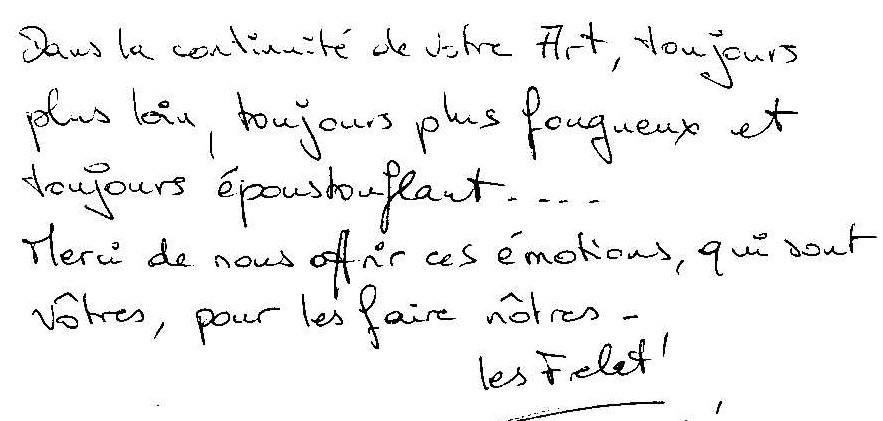 Dans la continuité de votre Art, toujours
plus loin, toujours plus fougueux et
toujours époustouflant.....
Merci de nous offrir ces émotions, qui sont
vôtres, pour les faire nôtres -
les